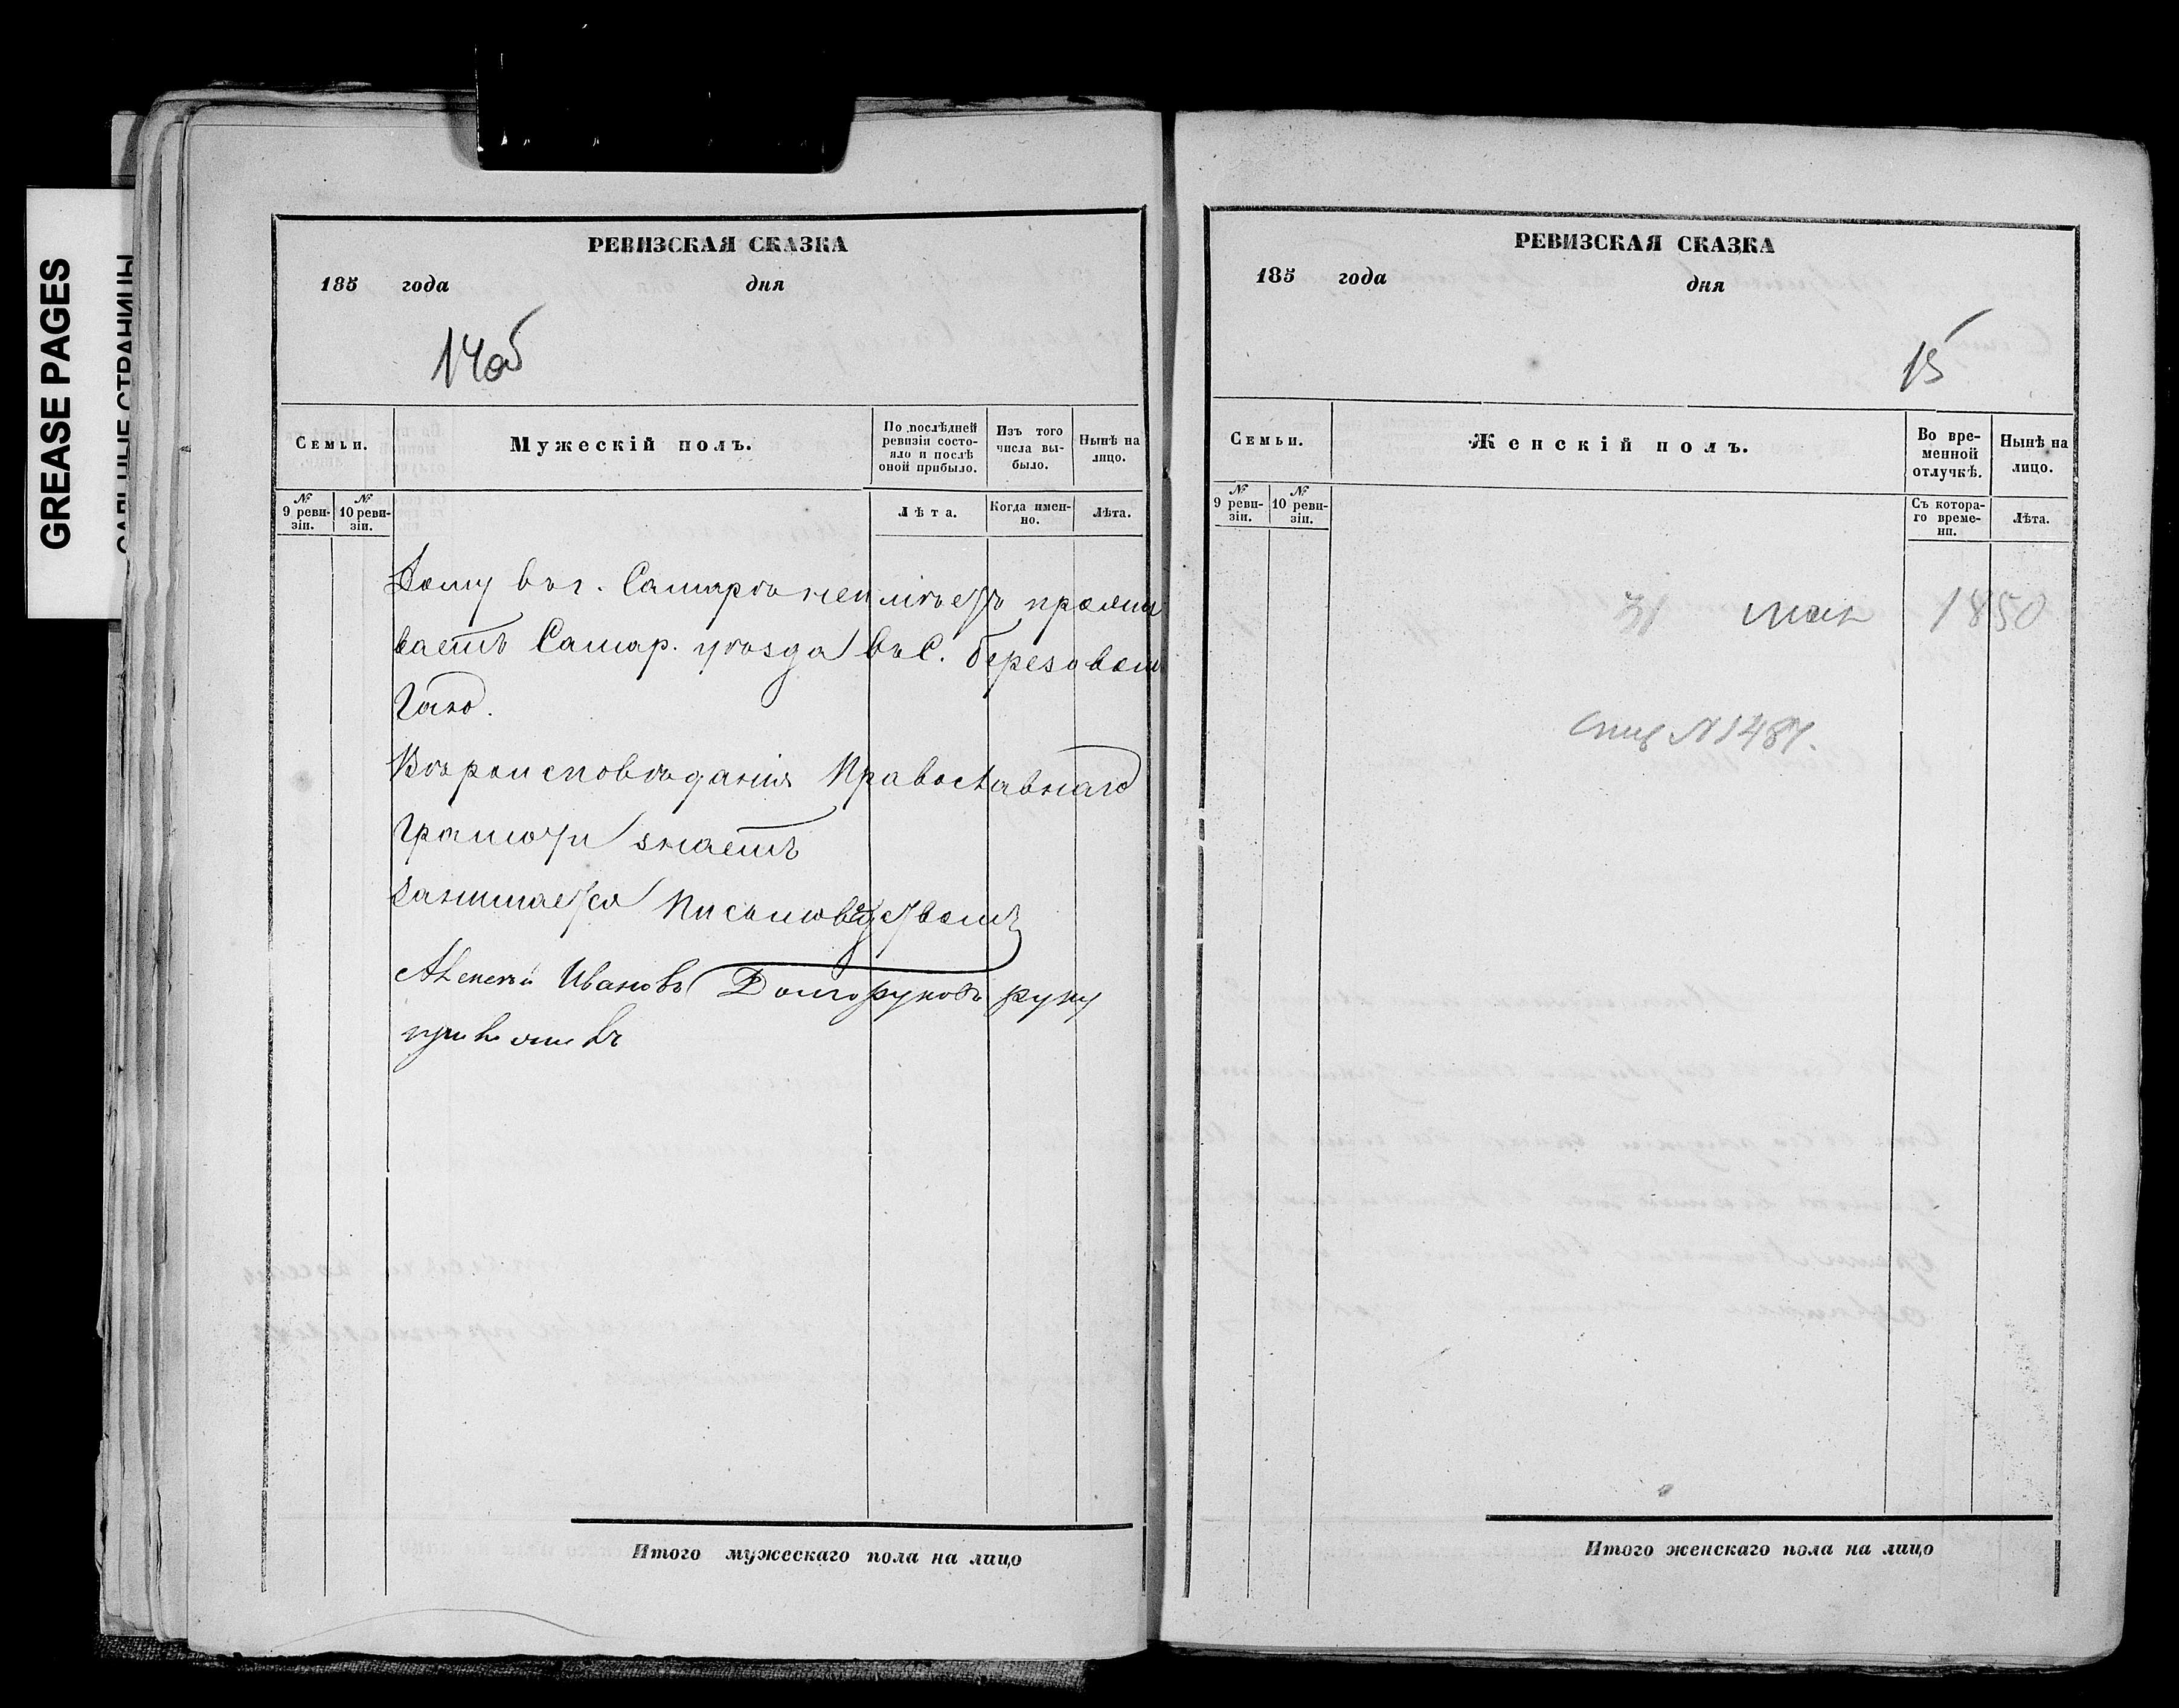 GREASE PAGES
САЛЬНЫЕ СТРАНИЦЫ
РЕВИЗСКАЯ СКАЗКА
185 года дня
14об
Семьи.
Мужескій полъ.
По послѣдней ревизіи состояло и послѣ оной прибыло.
Изъ того числа выбыло.
Нынѣ на лицо.
№ 9 ревизіи.
№ 10 ревизіи.
Лѣта.
Когда именно.
Лѣта.
Дому въ г. Самарѣ неимѣетъ прожи
ваетъ Самар. уѣзда въ С. березовом
Гаю.
Вѣроисповѣданія Православнаго
Грамоти знаетъ
занимается Писмоводствомъ
Алексѣй Ивановъ Долгоруковъ руку
приложилъ
Итого мужескаго пола на лицо
РЕВИЗСКАЯ СКАЗКА
185 года дня
15
Семьи.
Женскій полъ.
Во временной отлучкѣ.
Нынѣ на лицо.
№ 9 ревизіи.
№ 10 ревизіи.
Съ котораго времени.
Лѣта.
31 мая 1850
№ 1487.
Итого женскаго пола на лицо